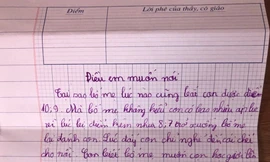 Điểm
Lời phê của thầy, cô giáo
Điều em muốn nói
Tại sao bố mẹ lúc nào cũng bắt con được điểm
10, 9. Mà bố mẹ không hiểu con có bao nhiêu áp lực
với lúc bị điểm kém như 8, 7 trở xuống bố mẹ
lại đánh con. Lúc đấy con chỉ nghĩ đến cái chết
cho rồi. Con biết bố mẹ muốn con học giỏi